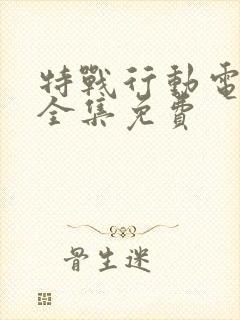 特戰行動電
全集免費
骨生迷